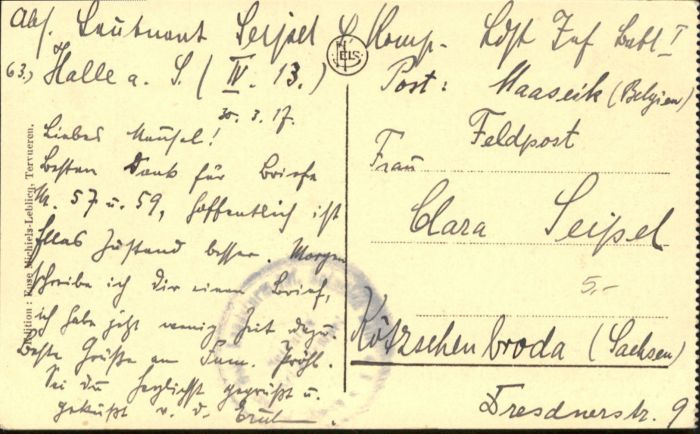 Abs. Leutnant Seipel Komp. Ldst Inf Batl I
63.) Halle a. S. (IV. 13.) Post: Maaseik (Belgien)
NELS
30. 3. 17.
Liebes Mausel!
Besten Dank für Briefe
N. 57 u. 59, hoffentlich ist
Ellas Zustand besser. Morgen
schreibe ich dir einen Brief,
ich habe jetzt wenig Zeit dazu.
Beste Grüße an Fam. Pröhl.
Sei du herzlichst gegrüßt u.
geküßt v. d.
Feldpost
Frau
Clara Seipel
5,-
Kötzschenbroda (Sachsen)
Dresdnerstr. 9
Edition : Michiels-Leblicq, Tervueren.